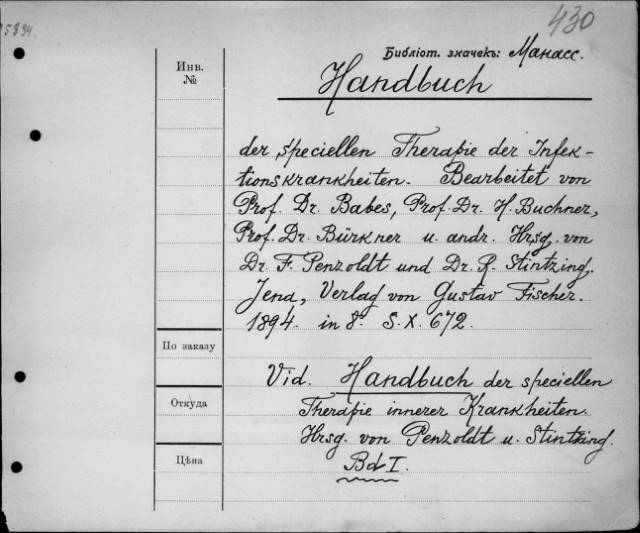 430
5894.
Библіот. значекъ: Манасс.
Инв.
№
Handbuch
der speciellen Therapie der Infek-
tionskrankheiten. Bearbeitet von
Prof. Dr. Babes, Prof. Dr. H. Buchner,
Prof. Dr. Bürkner u. andr. Hrsg. von
Dr. F. Penzoldt und Dr. R. Stintzing.
Jena, Verlag von Gustav Fischer.
1894. in 8°. S. X. 672.
По заказу
Vid. Handbuch der speciellen
Откуда
Therapie innerer Krankheiten.
Hrsg. von Penzoldt u. Stintzing.
Цѣна
Bd I.